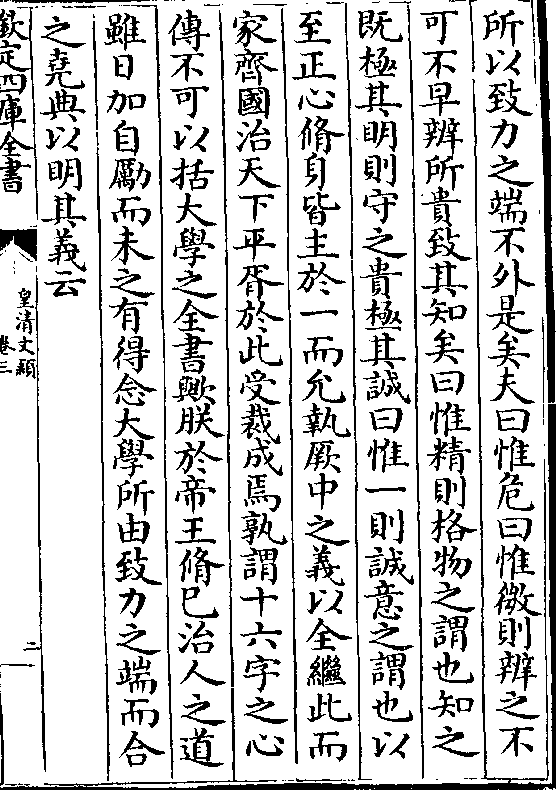 所以致力之端不外是矣夫曰惟危曰惟微則辨之不
可不早辨所貴致其知矣曰惟精則格物之謂也知之
既極其明則守之貴極其誠曰惟一則誠意之謂也以
至正心脩身皆主於一而允執厥中之義以全繼此而
家齊國治天下平胥於此受裁成焉孰謂十六字之心
傳不可以括大學之全書歟朕於帝王脩已治人之道
雖日加自勵而未之有得念大學所由致力之端而合
之堯典以明其義云
欽定四庫全書
皇清文穎
卷三
二